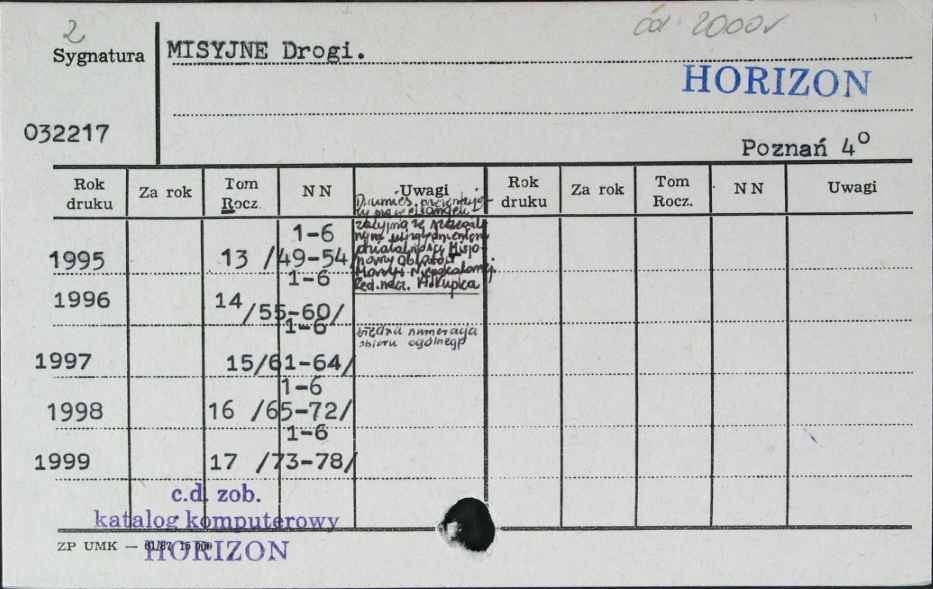 2
od 2000r
Sygnatura
MISYJNE Drogi.
HORIZON
032217
Poznań 4°
Rok druku Za rok Tom Rocz. NN Uwagi Rok druku Za rok Tom Rocz. NN Uwagi
Dwumies. prezentują-
cy pracę ewangeli-
zacyjną ze szczegól-
nym uwzględnieniem
działalności Misjo-
narzy Oblatów
Maryi Niepokalanej.
Red. nacz. A. Kupka
1-6
1995 13 /49-54/
1-6
1996 14 /55-60/
1-6
błędna numeracja
zbioru ogólnego
1997 15/61-64/
1-6
1998 16 /65-72/
1-6
1999 17 /73-78/
c.d. zob.
katalog komputerowy
HORIZON
ZP UMK — 61/87 15 000